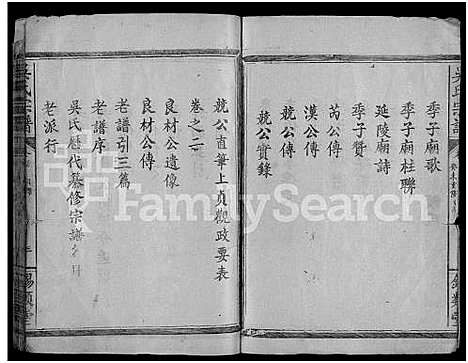 吳氏宗譜
季子廟歌
季子廟柱聯
延陵廟詩
季子贊
芮公傳
漢公傳
兢公傳
兢公實錄
兢公直筆上貞觀政要表
卷之二
良材公遺像
良材公傳
老譜引三篇
老譜序
吳氏歷代纂修宗譜名目
老派行
吳氏宗譜
錫類堂
FamilySearch